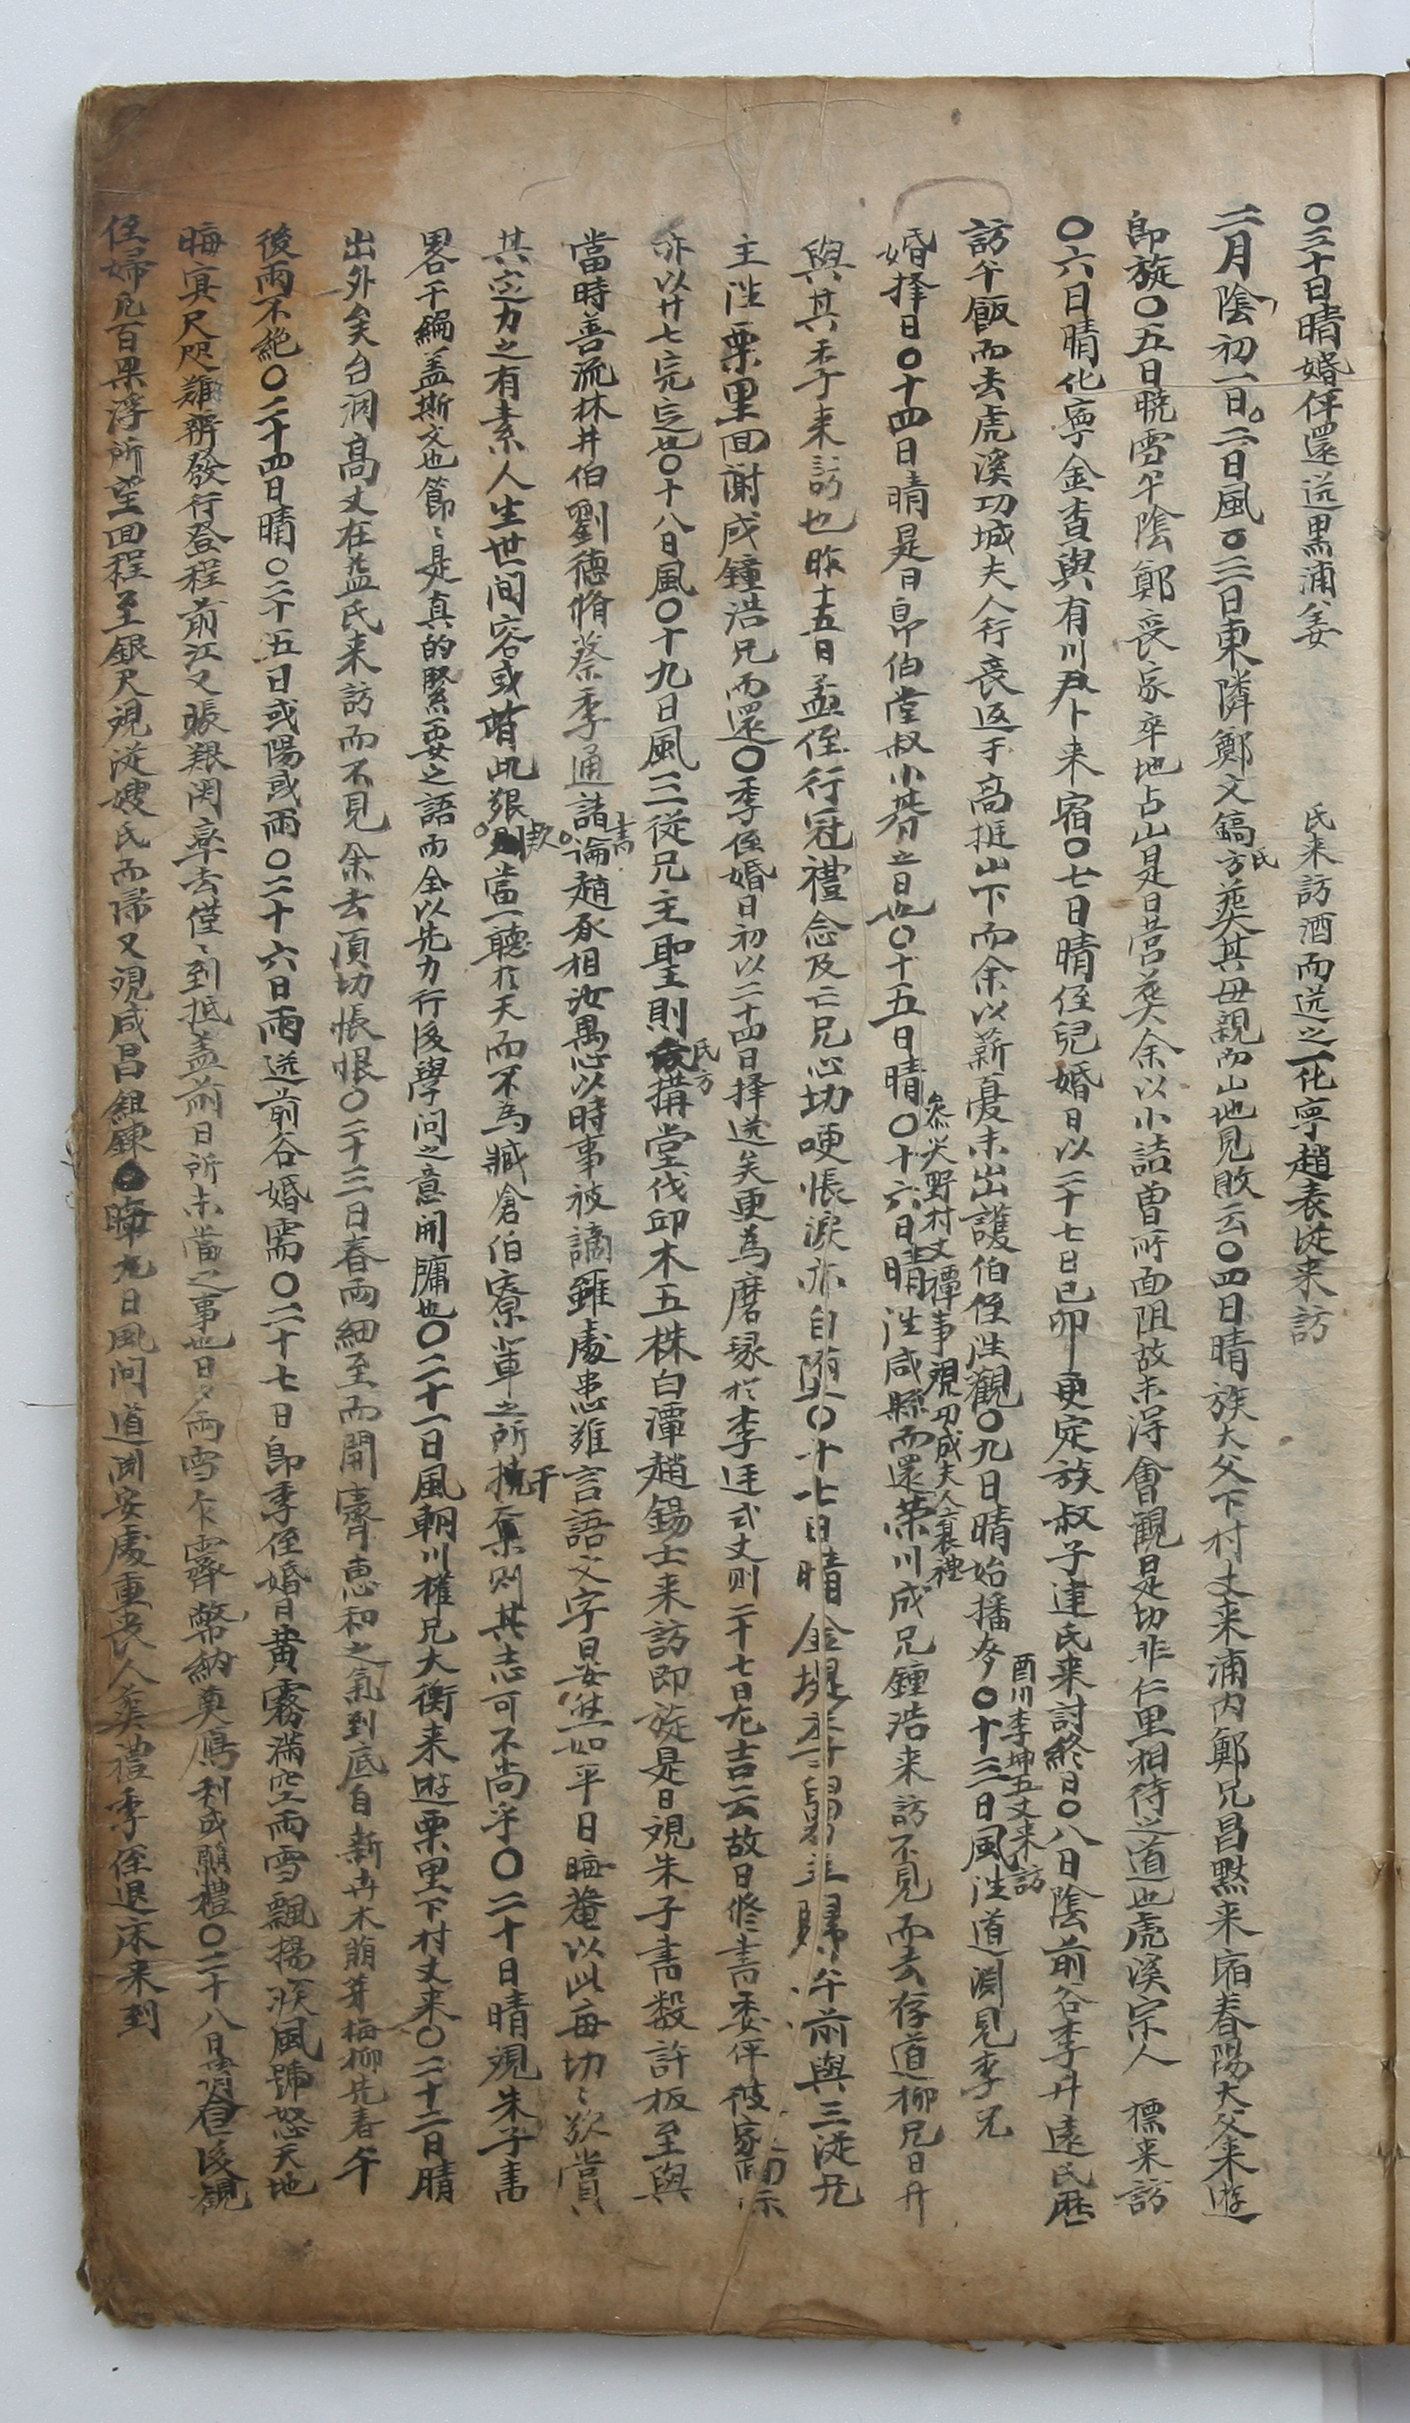 〇三十日晴婚伻還送黑浦姜氏来訪酒而送之化寧趙表從来訪
二月陰初一日。二日風〇三日東隣鄭文鎬氏方葬其母親而山地見敗云〇四日晴族大父下村丈来浦内鄭兄昌默来宿春陽大父来遊
即旋〇五日曉雪午陰鄭丧家卒地占山是日营葬余以小詰曾所面阻故未得會觀是切非仁里相待之道也虎溪宗人 標来訪
〇六日晴化寧金查與有川尹卜来宿〇七日晴侄兒婚日以二十七日己卯更定族叔子建氏来討終日〇八日陰前谷李升遠氏歷
訪午飯而去虎溪功城夫人行丧返于高挺山下而余以薪憂未出護伯侄往觀〇九日晴始播麥〇十三日風往道淵見李兄
酉川李坤五丈来訪
婚择日〇十四日晴是日即伯堂叔小朞立日也〇十五日晴〇十六日晴往咸縣而還榮川成兄鍾浩来訪不見而去存道柳兄日升
叅尖野村丈禫事現功咸夫人襄禮
與其季来訪也昨十五日孟侄行冠禮念及亡兄心切哽悵淚亦自墮〇十七日晴金 歸午前與三從兄
主往栗里回謝成鍾浩兄而還〇季侄婚日初以二十四日择送矣更為磨琢於李廷式丈則二十七日尤吉云故日修書委伻彼家回示
亦以廿七完定也〇十八日風〇十九日風三從兄主聖則氏方搆堂伐邱木五株白潭趙錫士来訪即旋是日覌朱子書数許板至與
當時善流林井伯劉德脩蔡季通諸書論趙承相汝愚心以時事被謫雖處患難言語文字晏然如平日晦菴以此每切〻歎賞
其定力之有素人生世间容或有此艱款則當一聽於天而不為臧倉伯寮輩之所撓干奪則其志可不尚乎〇二十日晴覌朱子書
畧干編盖斯文也節〻是真的緊要之語而全以先力行後學问之意開牖也〇二十一日風輞川權兄大衡来遊栗里下村丈来〇二十二日晴
出外矣台洞高丈在益氏来訪而不見余去湏切悵恨〇二十三日春雨細至而開霽惠和之氣到底自新卉木萠芽梅柳先春午
後雨不絶〇二十四日晴〇二十五日或陽或雨〇二十六日雨送前谷婚需〇二十七日即季侄婚日黄霧滿空雨雪飄揚狀風號怒天地
晦冥尺咫難辨發行登程前江又賬艱関辛去僅〻到抵盖前日所未嘗之事也日夕雨雪乍霽幣納奠鴈利成願禮〇二十八日 後觀
侄婦凡百果浮所望回程至銀尺覌從嫂氏而帰又覌咸昌組鍊〇 九日風问道淵安處重丧人葬禮季侄退床来到